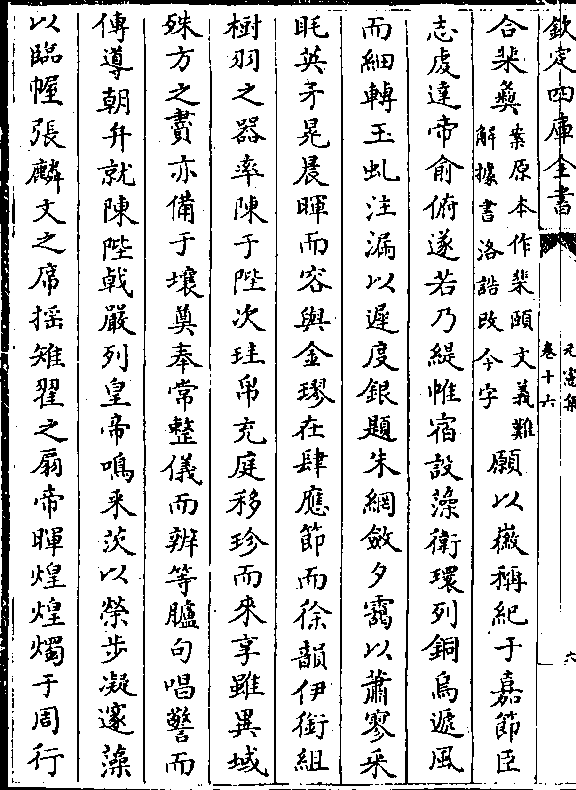 欽定四庫全書
元憲集
卷十六
六
合棐彝案原本作棐頤文義難解據書洛誥改今字願以徽稱紀于嘉節臣
志虔達帝俞俯遂若乃緹帷宿設藻衛環列銅烏遞風
而細轉玉虬注漏以遲度銀題朱網斂夕靄以蕭寥采
眊英矛晃晨暉而容與金璆在肆應節而徐韻伊銜組
樹羽之器率陳于陛次珪帛充庭移珍而來享雖異域
殊方之賮亦備于壤奠奉常整儀而辨等臚句唱警而
傳導朝升就陳陛戟嚴列皇帝鳴釆茨以榮步凝邃藻
以臨幄張麟文之席揺雉翟之扇帝暉煌煌燭于周行